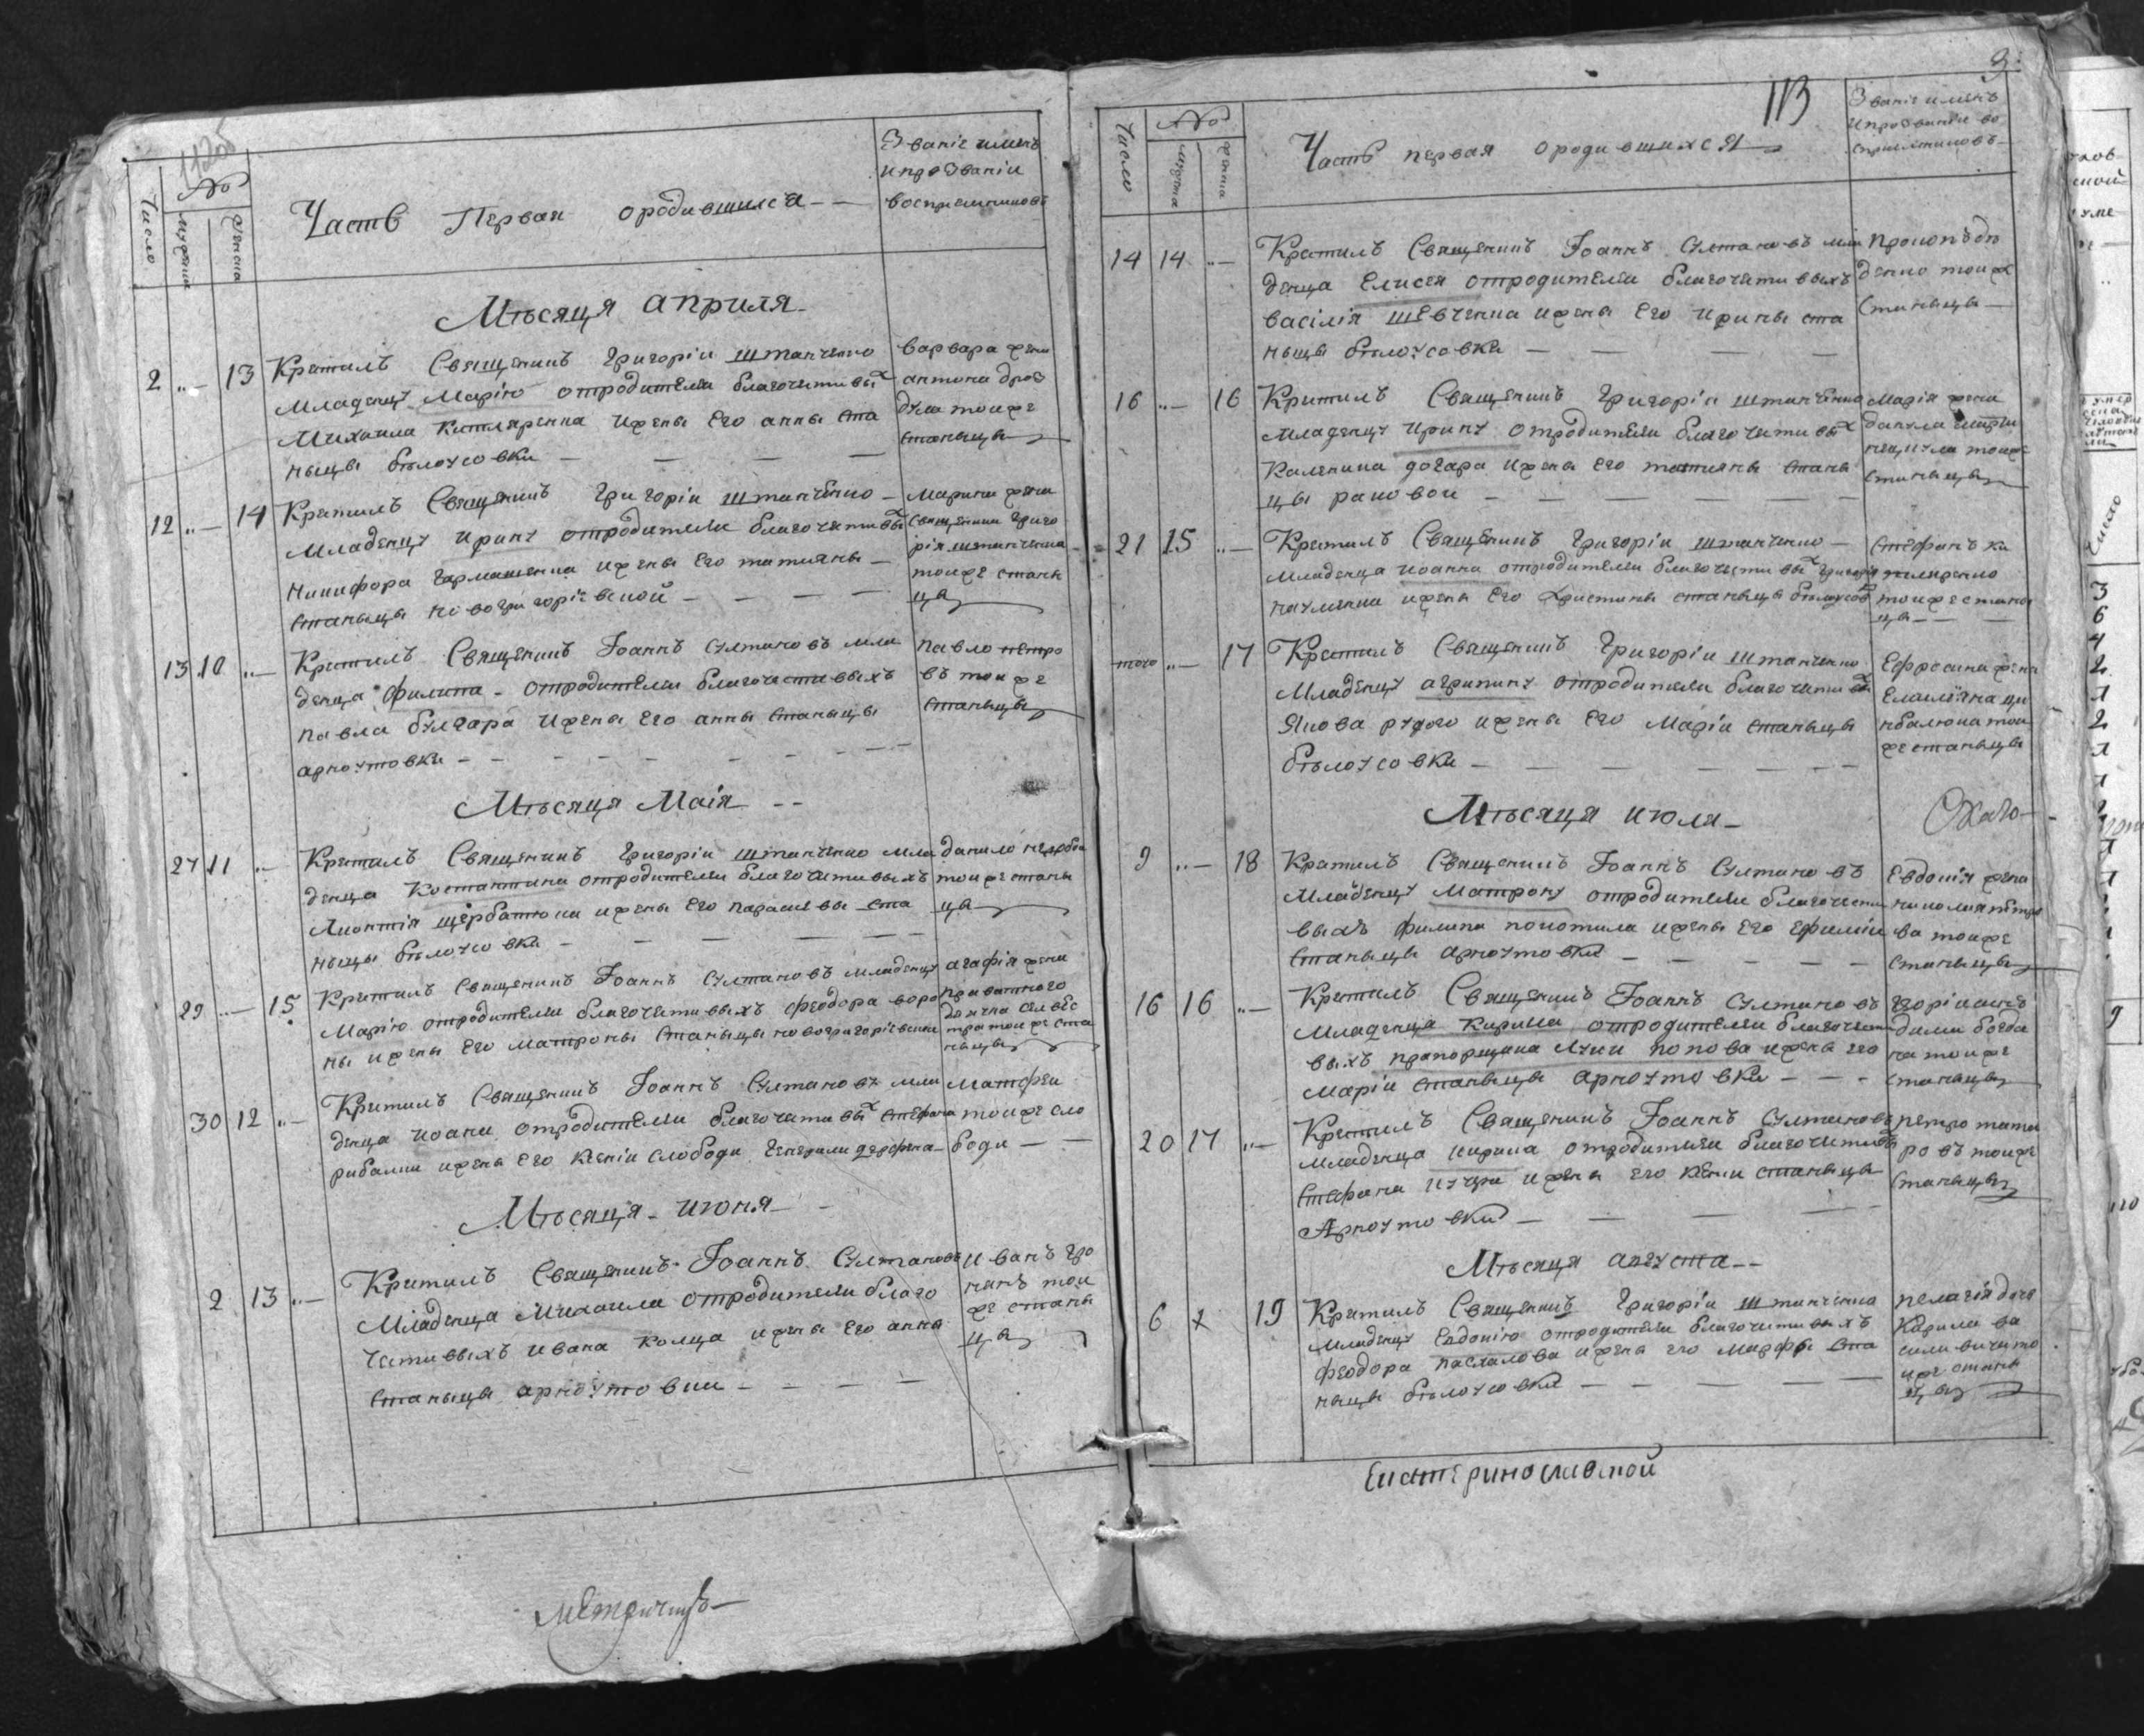 Число
№
мужеска
женска
Часть Первая ородившихся
Званіе имянъ
ипрозваніи
воспріемниковъ
Мѣсяця априля
2 13 Крѣтилъ Священикъ Григоріи штанченко
младенцу Марію отродителеи благочитивых
Михаила Китляренка ижены Его анны ста
ныцы бѣлоусовки
варвара жена
антона дроз
дула тоиже
станыцы
12 14 Крѣтилъ Священикъ Григоріи штанченко
младенцу ирину отродителеи благочитивы
никифора гармашенка ижены Его татияны
станыцы новогригоріевской
марина жена
священика григо
рія штанченка
тоиже станы
цы
13 10 Крѣтилъ Священикъ Іоаннъ Султановъ мла
денца филипа отродителеи благочестивыхъ
павла булгара ижены Его анны станыцы
арноутовки
павло петро
въ тоиже
станыцы
Мѣсяця Маія
27 11 Крѣтилъ Священикъ Григоріи штанченко мла
денца Костантина отродителеи благочитивыхъ
Леонтія щербатюка ижены Его параскевы ста
ныцы бѣлоусовки
данило
тоиже станы
цы
29 15 Крѣтилъ Священикъ Іоаннъ Султановъ младенцу
Марію отродителеи благочитивыхъ феодора воро
ны ижены Его матроны станыцы новогригоріевски
агафія жена
приватного
дячка силвес
тра тоиже ста
ныцы
30 12 Крѣтилъ Священикъ Іоаннъ Султановъ мла
денца иоана отродителеи благочитивых стефана
рибалки ижены Его Ксеніи слободи
Матфеи
тоиже сло
боди
Мѣсяця июня
2 13 Крѣтилъ Священикъ Іоаннъ Султановъ
младенца Михаила отродителеи благо
читивыхъ ивана колца ижены Его анны
станыцы арноутовки
иванъ гро
ианъ тои
же станы
цы
113
Число
№
мужеска
женска
Часть первая ородившихся
Званіе имянъ
ипрозваніи во
спріемниковъ
14 14 Крѣтилъ Священикъ Іоаннъ Султановъ мла
денца Елисея отродителеи благочитивыхъ
василія шевченка ижены Его ирины ста
ныцы бѣлоусовки
денко тоиже
станыцы
16 16 Крѣтилъ Священикъ Григоріи штанченко
младенцу ирину отродителеи благочитивых
Каленика догара ижены Его татияны станы
цы раковои
Марія жена
данила
тоиже
станыцы
21 15 Крѣтилъ Священикъ Григоріи штанченко
младенца иоанна отродителеи благочитивых григорія
ижены Его христины станыцы бѣлоусов
стефанъ ки
тоиже станы
цы
того 17 Крѣтилъ Священикъ Григоріи штанченко
младенцу агрипину отродителеи благочитивых
Якова рудого ижены Его Маріи станыцы
бѣлоусовки
Ефросина жена
Емалияна ци
нбалюка тои
же станыцы
Мѣсяця июля
9 18 Крѣтилъ Священикъ Іоаннъ Султановъ
младенцу Матрону отродителеи благочести
выхъ филипа покотила ижены Его Ефиміи
станыцы арноутовки
Евдокія жена
николая петро
ва тоиже
станыцы
16 16 Крѣтилъ Священикъ Іоаннъ Султановъ
младенца Кирила отродителеи благочити
выхъ прапорщика луки попова ижены его
Маріи станыцы арноутовки
Георіи
богда
на тоиже
станыцы
20 17 Крѣтилъ Священикъ Іоаннъ Султановъ
младенца кирила отродителеи благочитивы
стефана ижены его ксеніи станыцы
Арноутовки
петро тата
ровъ тоиже
станыцы
Мѣсяця августа
6 19 Крѣтилъ Священикъ Григоріи штанченко
младенцу Евдокію отродителеи благочитивыхъ
феодора паскалова ижены его марфы ста
ныцы бѣлоусовки
пелагія дочь
Кирила ва
силивича то
иже станы
цы
Екатеринославской